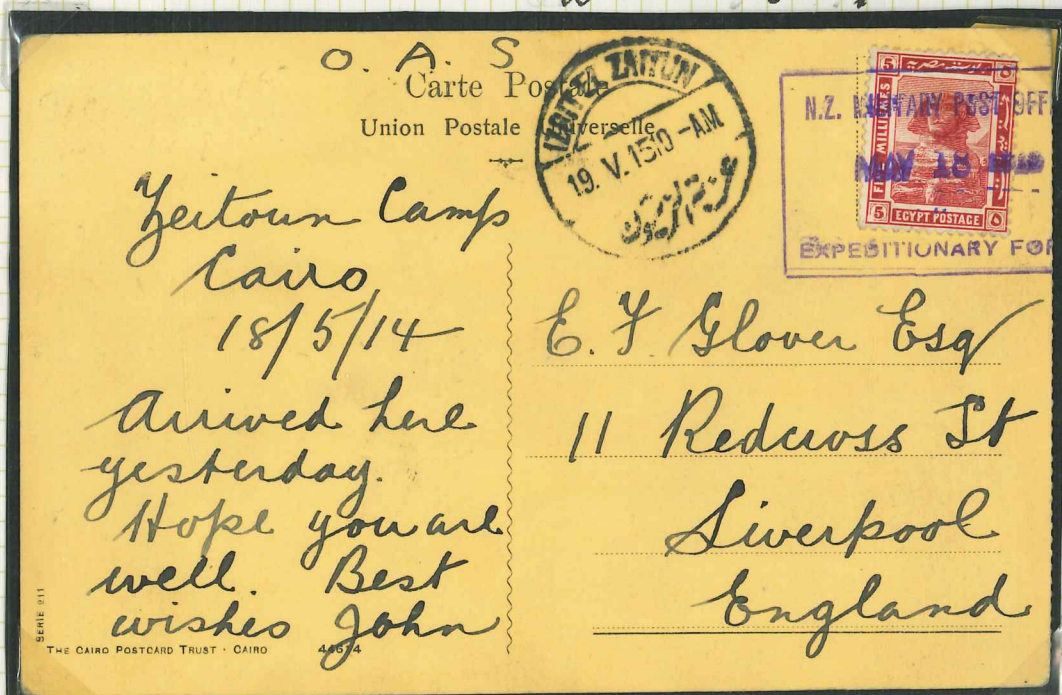 O. A. S
Carte Postale
Union Postale Universelle
IZBET EL ZAITUN
19. V. 15 10 -AM
عزبة الزيتون
N.Z. MILITARY POST OFF
MAY 18
EXPEDITIONARY FOR
5 ٥
FIVE MILLIEMES
5 EGYPT POSTAGE ٥
Zeitoun Camp
Cairo
18/5/14
Arrived here
yesterday.
Hope you are
well. Best
wishes John
E. F. Glover Esq
11 Redcross St
Liverpool
England
SERIE 211
THE CAIRO POSTCARD TRUST · CAIRO 44614